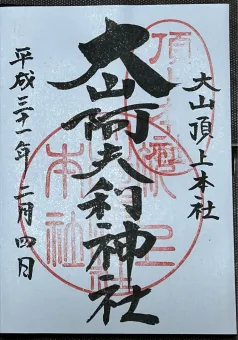 大山頂上本社
大山阿夫利神社
平成三十一年二月四日
本社